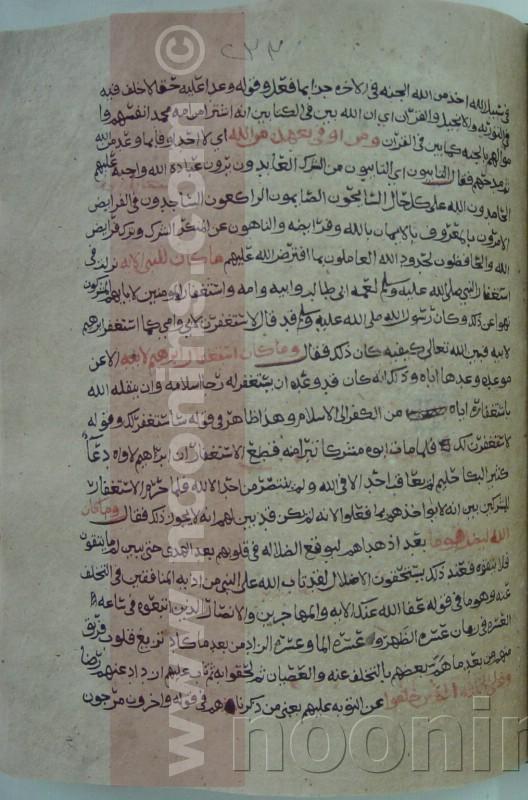 ٢٣٣
في سبيل الله اخذ من الله الجنه في الاخره جزا بما فعل وقوله وعدا عليه حقا لا خلف فيه
في التوريه والانجيل والقران اي ان الله بين في الكتابين انه اشترا من امه محمد انفسهم وا
موالهم بالجنه كما بين في القران ومن اوفى بعهده من الله اي لا احد اوفا بما وعد من الله
ثم مدحهم فقال التايبون اي التايبون من الشرك العابدون يرون عبادة الله واجبة عليهم
الحامدون الله على كل حال السايحون الصايمون الراكعون الساجدون في الفرايض
الامرون بالمعروف بالايمان بالله وفرايضه والناهون عن المنكر الشرك وترك فرايض
الله والحافظون لحدود الله العاملون بما افترض الله عليهم ما كان للنبي الايه نزلت في
استغفار النبي صلى الله عليه وسلم لعمه ابي طالب وابيه وامه واستغفار المومنين لابايهم المشركين
نهوا عن ذلك وكان رسول الله صلى الله عليه وسلم قد قال لاستغفرن لابي وامي كما استغفر ابرهيم
لابيه فبين الله تعالى كيفيه كان ذلك فقال وما كان استغفار ابرهيم لابيه الا عن
موعده وعدها اياه وذلك انه كان قد وعده ان يستغفر له رجا اسلامه وان ينقله الله
باستغفاره اياه من الكفر الى الاسلام وهذا ظاهر في قوله ساستغفر لك وقوله
لاستغفرن لك فلما مات ابوه مشركا تبرا منه فقطع الاستغفار ان ابراهيم لاواه دعا
كثير البكا حليم لم يعاقب احدا الا في الله ولم ينتصر من احد الا لله فلما حرم الاستغفار
للمشركين بين انه لا يواخذهم بما فعلوا لانه لم يكن قد بين لهم انه لا يجوز ذلك فقال وما كان
الله ليضل قوما بعد اذ هداهم ليوقع الضلاله في قلوبهم بعد الهدى حتى يبين لهم ما يتقون
فلا يتقوه فعند ذلك يستحقون الاضلال لقد تاب الله على النبي من اذنه المنافقين في التخلف
عنه وهو ما في قوله عفا الله عنك الايه والمهاجرين والانصار الذين اتبعوه في ساعه
العسره في زمان عسره الظهر وعسره الما وعسره الزاد من بعد ما كاد تزيغ قلوب فريق
منهم من بعد ما همت بعضهم بالتخلف عنه والعصيان ثم لحقوا به ثم تاب عليهم ازداد عنهم رضا
وعلى الثلثه الذين خلفوا عن التوبه عليهم يعني من ذكرنا هم في قوله واخرون مرجون
© www.noonin
noonin